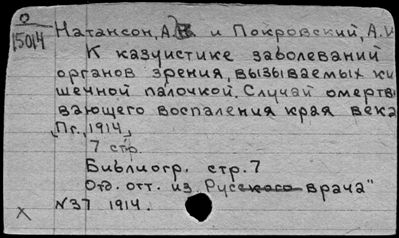 О
15014
Натансон, А.В. и Покровский, А.И
К казуистике заболеваний
органов зрения, вызываемых ки
шечной палочкой. Случай омертв
вающего воспаления края века
Пг., 1914,
7 стр.
Библиогр. стр. 7
Отд. отт. из "Русского врача"
N37 1914.
X